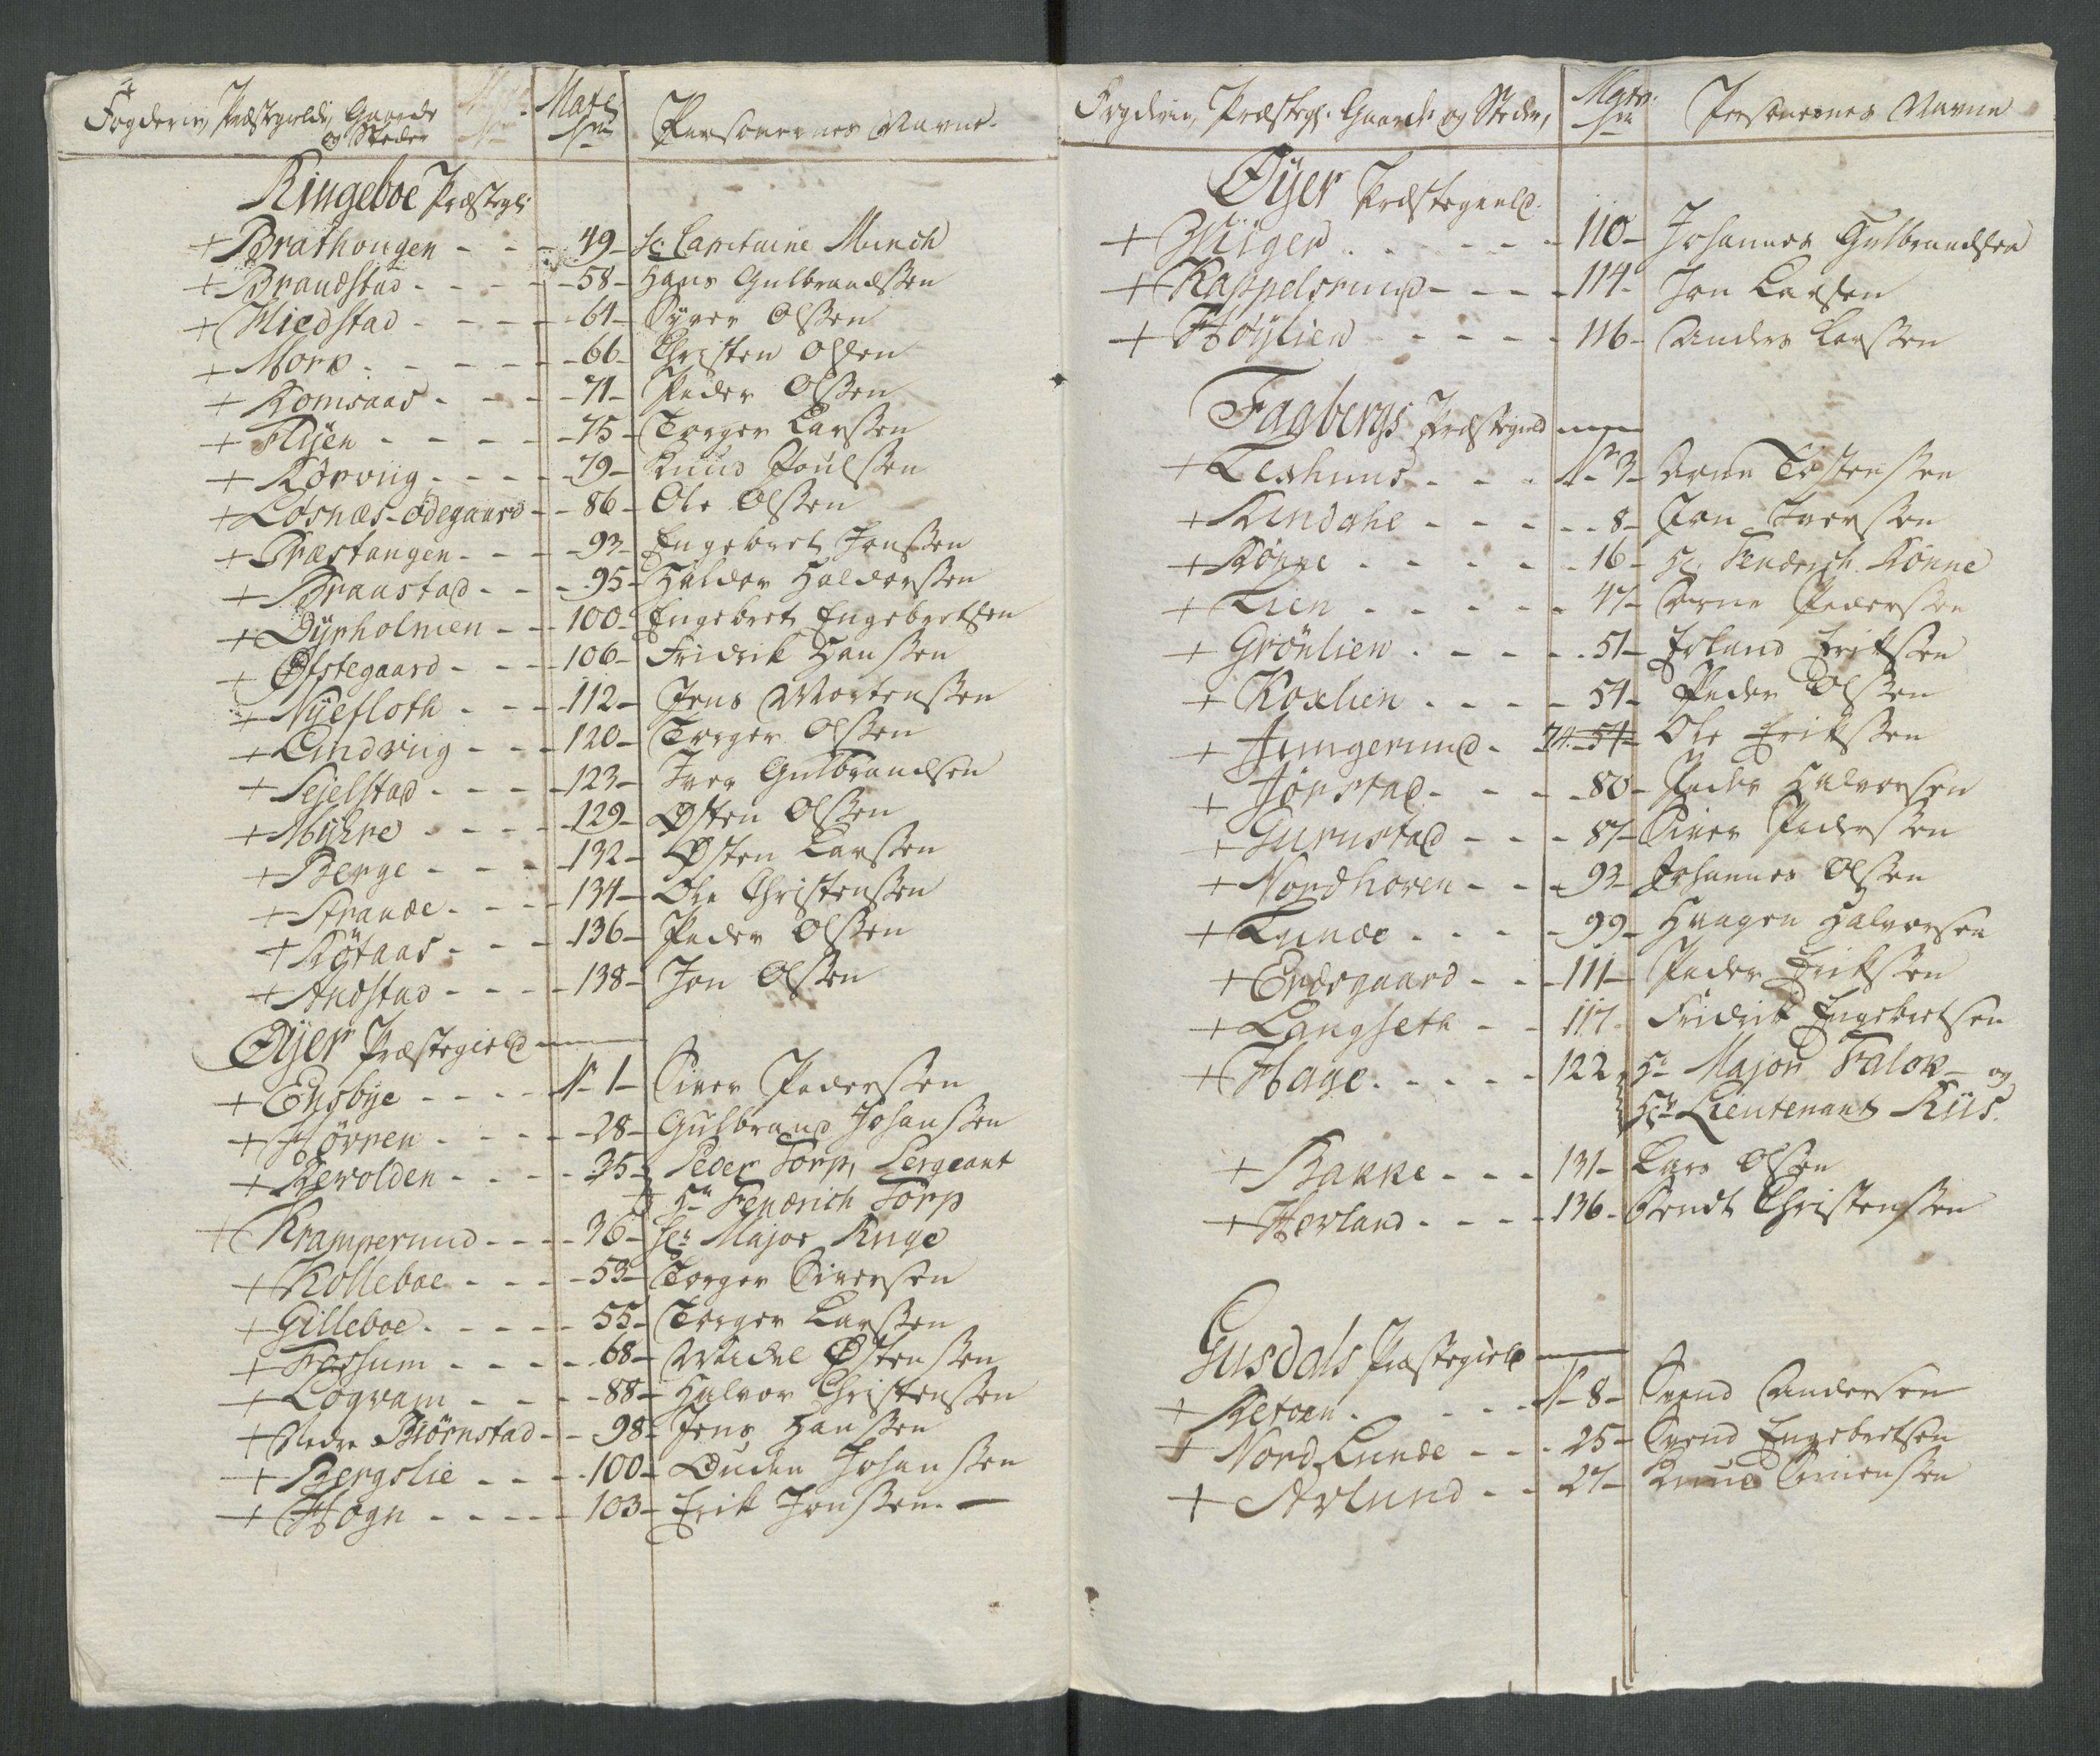 Fogderie, Præstegield, Gaarde og Steder
Matr. No
Personernes Navne.
Ringeboe Præstegl:
+ Brathougen - - - 49 - Hr. Capitaine Munch
+ Brandstad - - - - 58 - Hans Gulbrandssen
+ Hiedstad - - - - 61 - Syver Olssen
+ Morp - - - - 66 - Christen Olsen
+ Romsaas - - - 71 - Peder Olssen
+ Flyen - - - - 75 - Torger Larssen
+ Kørvig - - - - 79 - Knud Poulssen
+ Losnæs-ødegaard - - 86 - Ole Olssen
+ Præstangen - - - 93 - Engebret Jonssen
+ Braustad - - - 95 - Haldor Haldorssen
+ Dyrholmen - - 100 - Engebret Engebretsen
+ Øfstegaard - - - 106 - Fridrik Hanssen
+ Nyefloth - - - 112 - Jens Mortenssen
+ Lindviig - - - 120 - Torger Olssen
+ Sejelstad - - - - 123 - Iver Gulbrandsen
+ Myhre - - - - 129 - Østen Olssen
+ Berge - - - - 132 - Østen Larssen
+ Strande - - - 134 - Ole Christenssen
+ Røtaas - - - 136 - Peder Olssen
+ Andstad - - - - 138 - Jon Olssen
Øyer Præstegield
+ Ensbye - - - - N. 1 - Siver Pederssen
+ Hørnen - - - - 28 - Gulbrand Johanssen
+ Revolden - - - - 35 - Peder Torp, Sergeant
Hr. Fendrich Torp
+ Kramperuud - - - - 36 - Hr. Major Ruge
+ Kolleboe - - - - 53 - Torger Siversen
+ Gilleboe - - - - - 55 - Torger Larssen
+ Fossum - - - - 68 - Mikel Østenssen
+ Logvam - - - - 88 - Halvor Christenssen
+ Nedre Biørnstad - - 98 - Jens Hanssen
+ Bergslie - - - - 100 - Ouden Johanssen
+ Hogn - - - - - 103 - Erik Jonssen. -
Fogderie, Præstegl. Gaarde og Steder,
Matr. No
Personernes Navne
Øyer Præstegield.
+ Skiiger - - - - - 110 - Johannes Gulbrandsen
+ Kappelsruud - - - - 114 - Jon Larsen
+ Høylien - - - - - 116 - Anders Larssen
Faabergs Præstegield
+ Lexhuus - - - N. 3 - Arne Tostenssen
+ Rindahl - - - - - 8 - Jon Iverssen
+ Rønne - - - - - 16 - Hr. Fendrich Rønne
+ Lien - - - - - 47 - Arne Pederssen
+ Grønlien - - - - - 51 - Erland Erikssen
+ Roxlien - - - - 54 - Peder Olssen
+ Jungeruud - 74. 54 - Ole Erikssen
+ Jørstad - - - - 80 - Peder Halvorsen
+ Gurustad - - - 87 - Siver Pederssen
+ Nordhoven - - - 93 - Johannes Olssen
+ Lunde - - - - 99 - Haagen Halvorsen
+ Endregaard - - - 111 - Peder Erikssen
+ Langseth - - - 117 - Fridrik Engebretsen
+ Hage - - - - - 122 - Hr. Major Falck - og
Hr. Lieutenant Riis.
+ Bakke - - - 131 - Lars Olssen
+ Horland - - - - 136 - Bendt Christenssen
Gusdals Præstegield
+ Retoen - - - - N. 8 - Svend Andersen
+ Nord Lunde - - - 25 - Svend Engebretsen
+ Avlund - - - 27 - Knud Simenssen